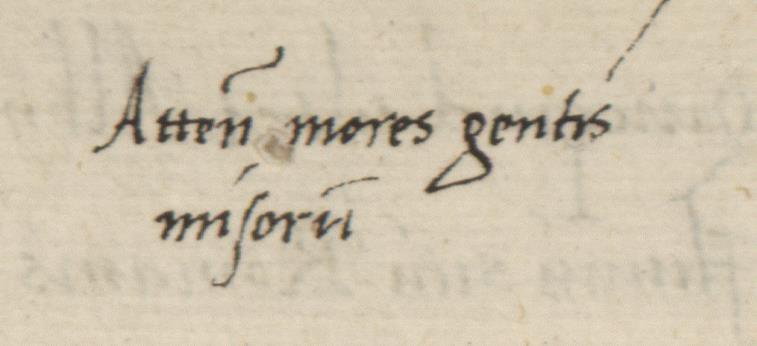 Atteñ mores gentis
misorū